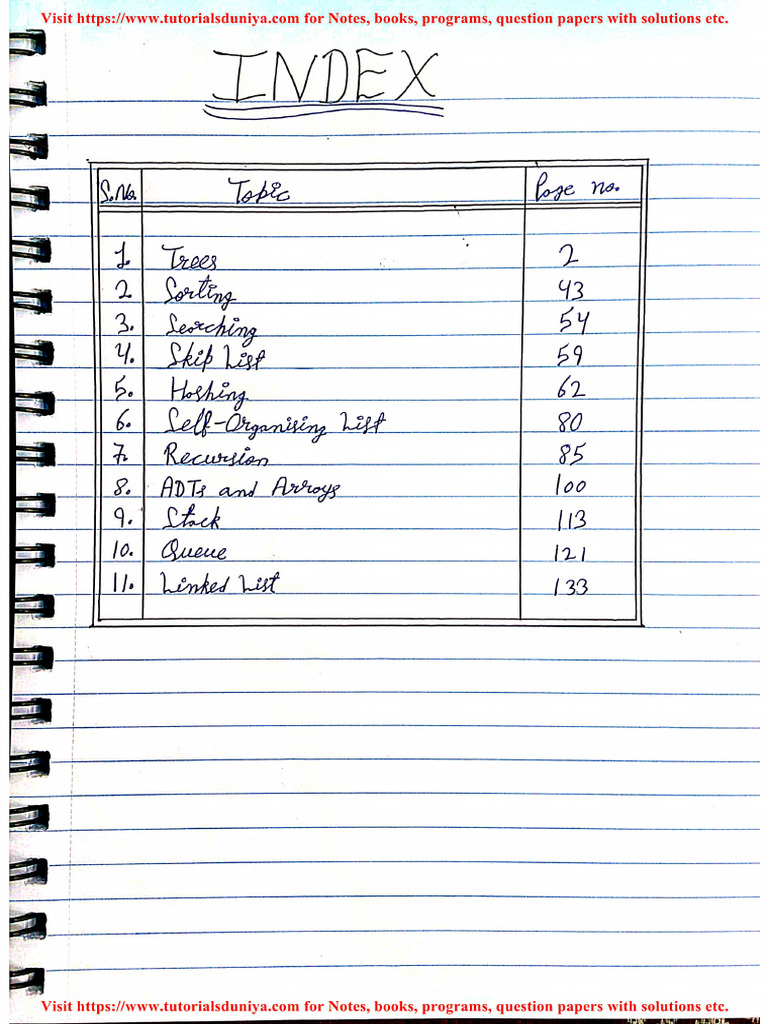 Visit https://www.tutorialsduniya.com for Notes, books, programs, question papers with solutions etc.
INDEX
S.No. Topic Page no.
1. Trees 2
2 Sorting 43
3. Searching 54
4. Skip List 59
5. Hashing 62
6. Self-Organising List 80
7. Recursion 85
8. ADTs and Arrays 100
9. Stack 113
10. Queue 121
11. Linked List 133
Visit https://www.tutorialsduniya.com for Notes, books, programs, question papers with solutions etc.